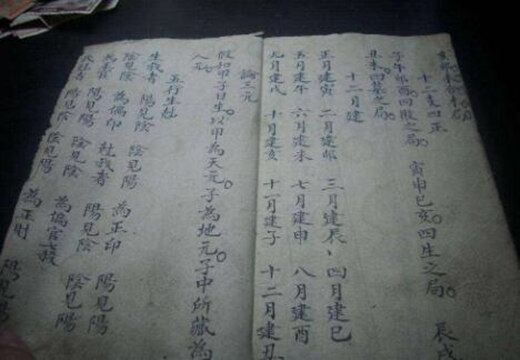 十二支四正
子午卯酉。四敗之局。寅申巳亥。四生之局。辰戌
丑未。四墓之局。
十二月建
正月建寅 二月建卯 三月建辰、四月建巳
五月建午 六月建未 七月建申 八月建酉
九月建戌 十月建亥 十一月建子 十二月建丑
論三元
假如甲子日生。以甲為天元。子為地元。子中所藏為
人元。
五行生尅
生我者 陽見陰 陰見陽 為正印 陽見陽
陰見陰 為偏印 尅我者 陽見陰 陰見陽
為正官 陽見陽 陰見陰 為偏官
陽見陰 陰見陽 為正財 陽見陽